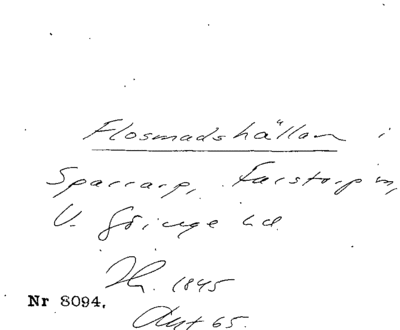 Flosmadshällan i
Sparrarp, Farstorp sn,
V. Göinge hd.
Th. 1845
Aut 65.
Nr 8094.